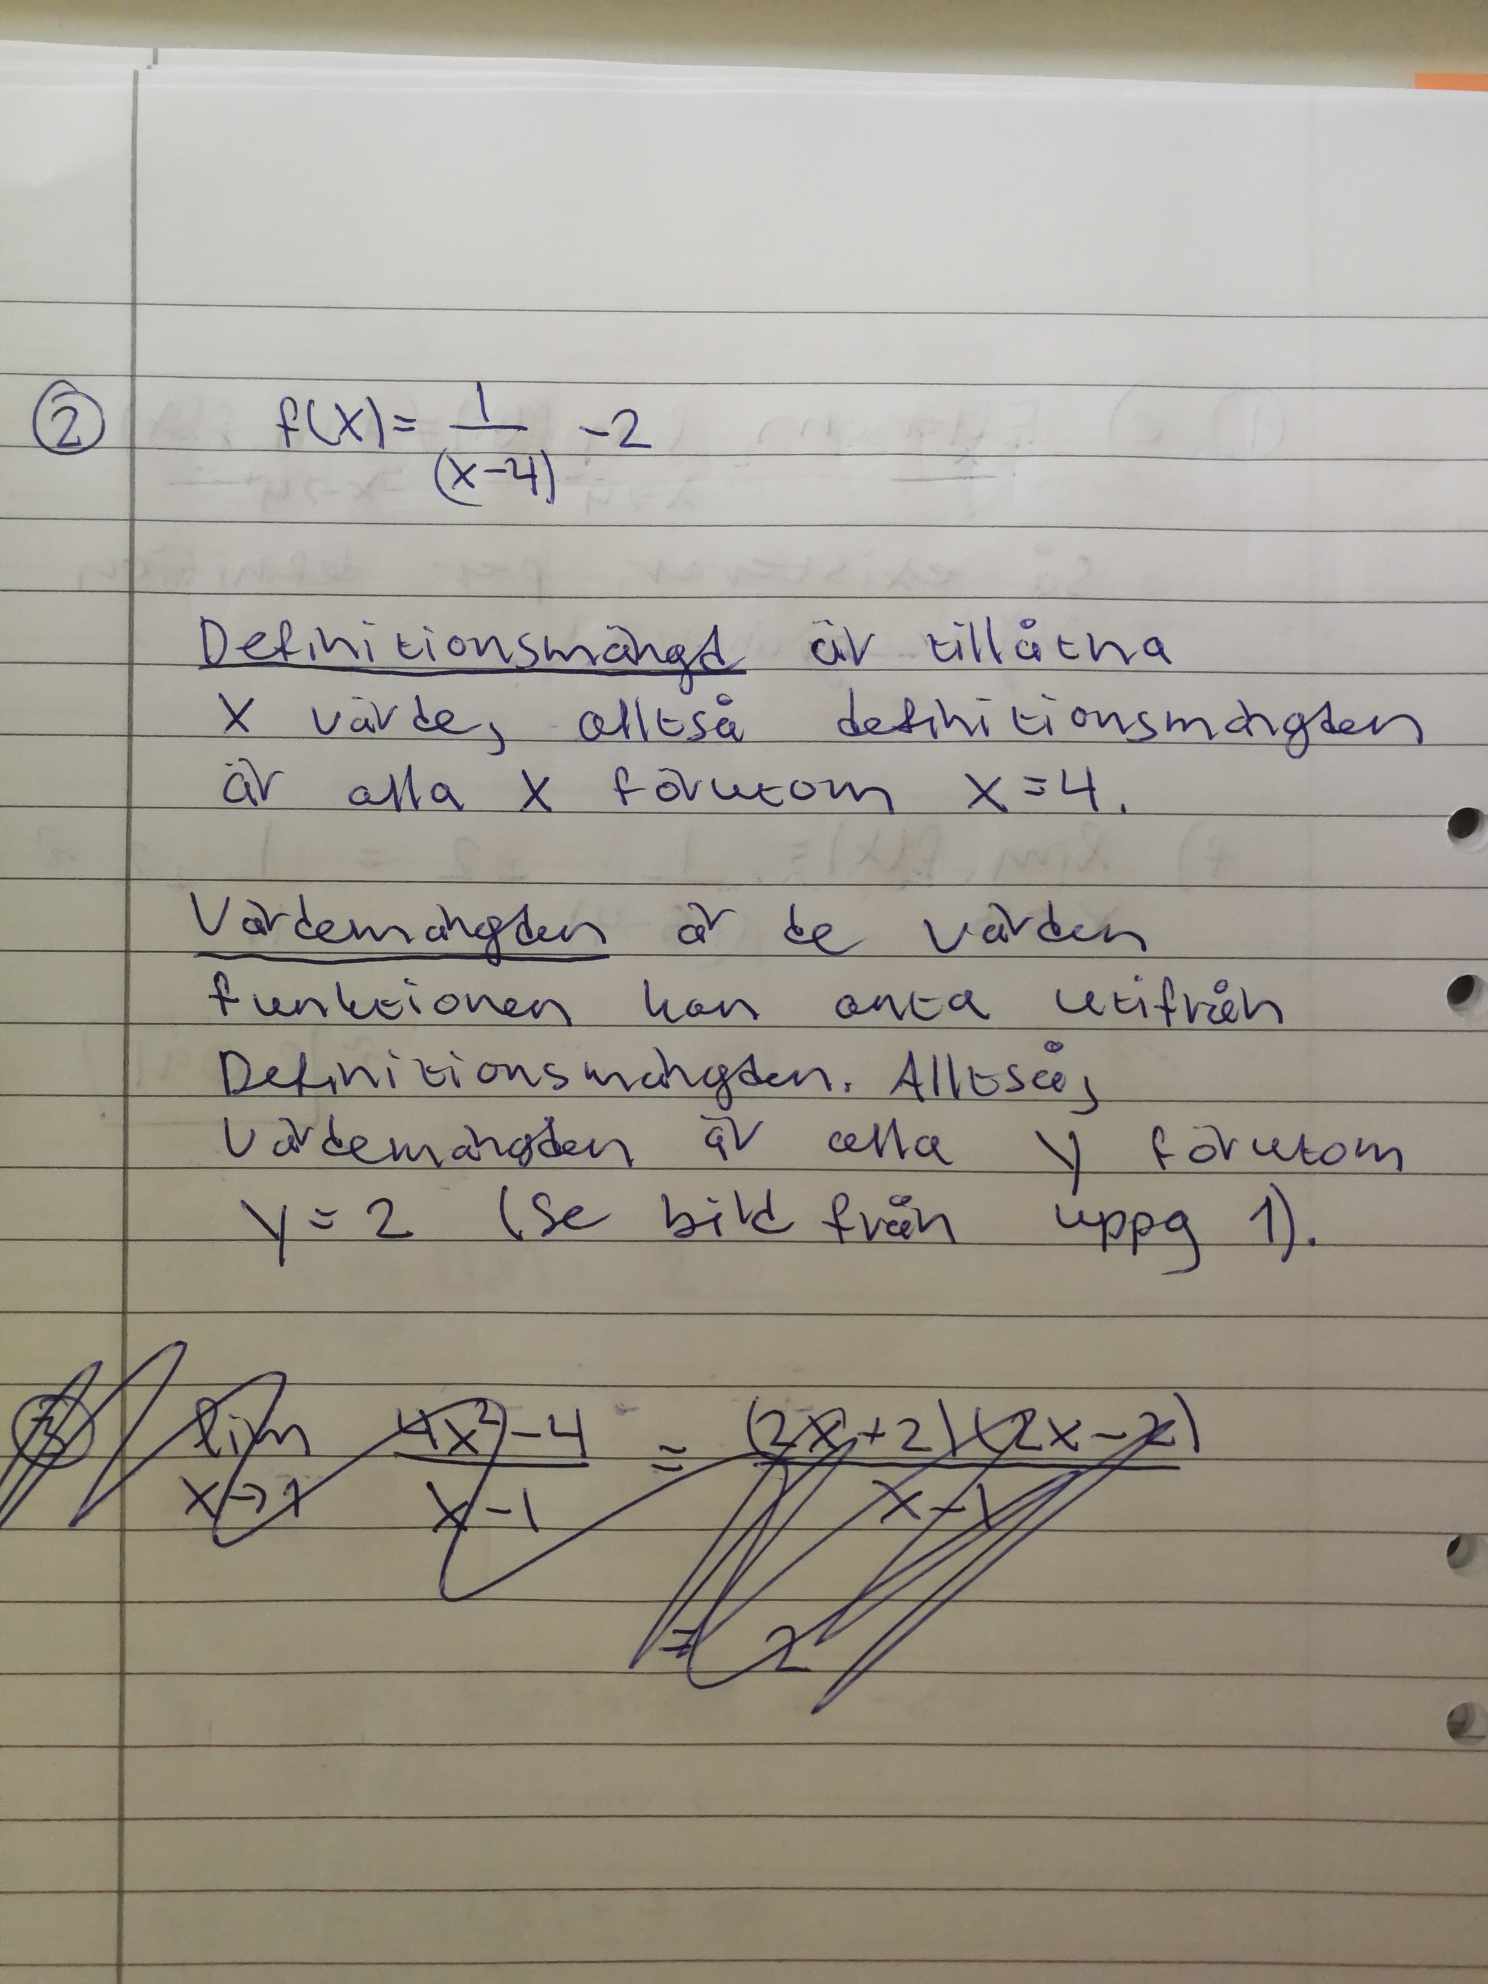 ② f(x) = 1/(x-4) -2
Definitionsmängd är tillåtna
x värde, alltså definitionsmängden
är alla x förutom x=4.
Värdemängden är de värden
funktionen kan anta utifrån
Definitionsmängden. Alltså,
Värdemängden är alla y förutom
y=2 (se bild från uppg 1).
lim x→1 (4x²-4)/(x-1) = (2x+2)(2x-2)/(x-1)
= 2